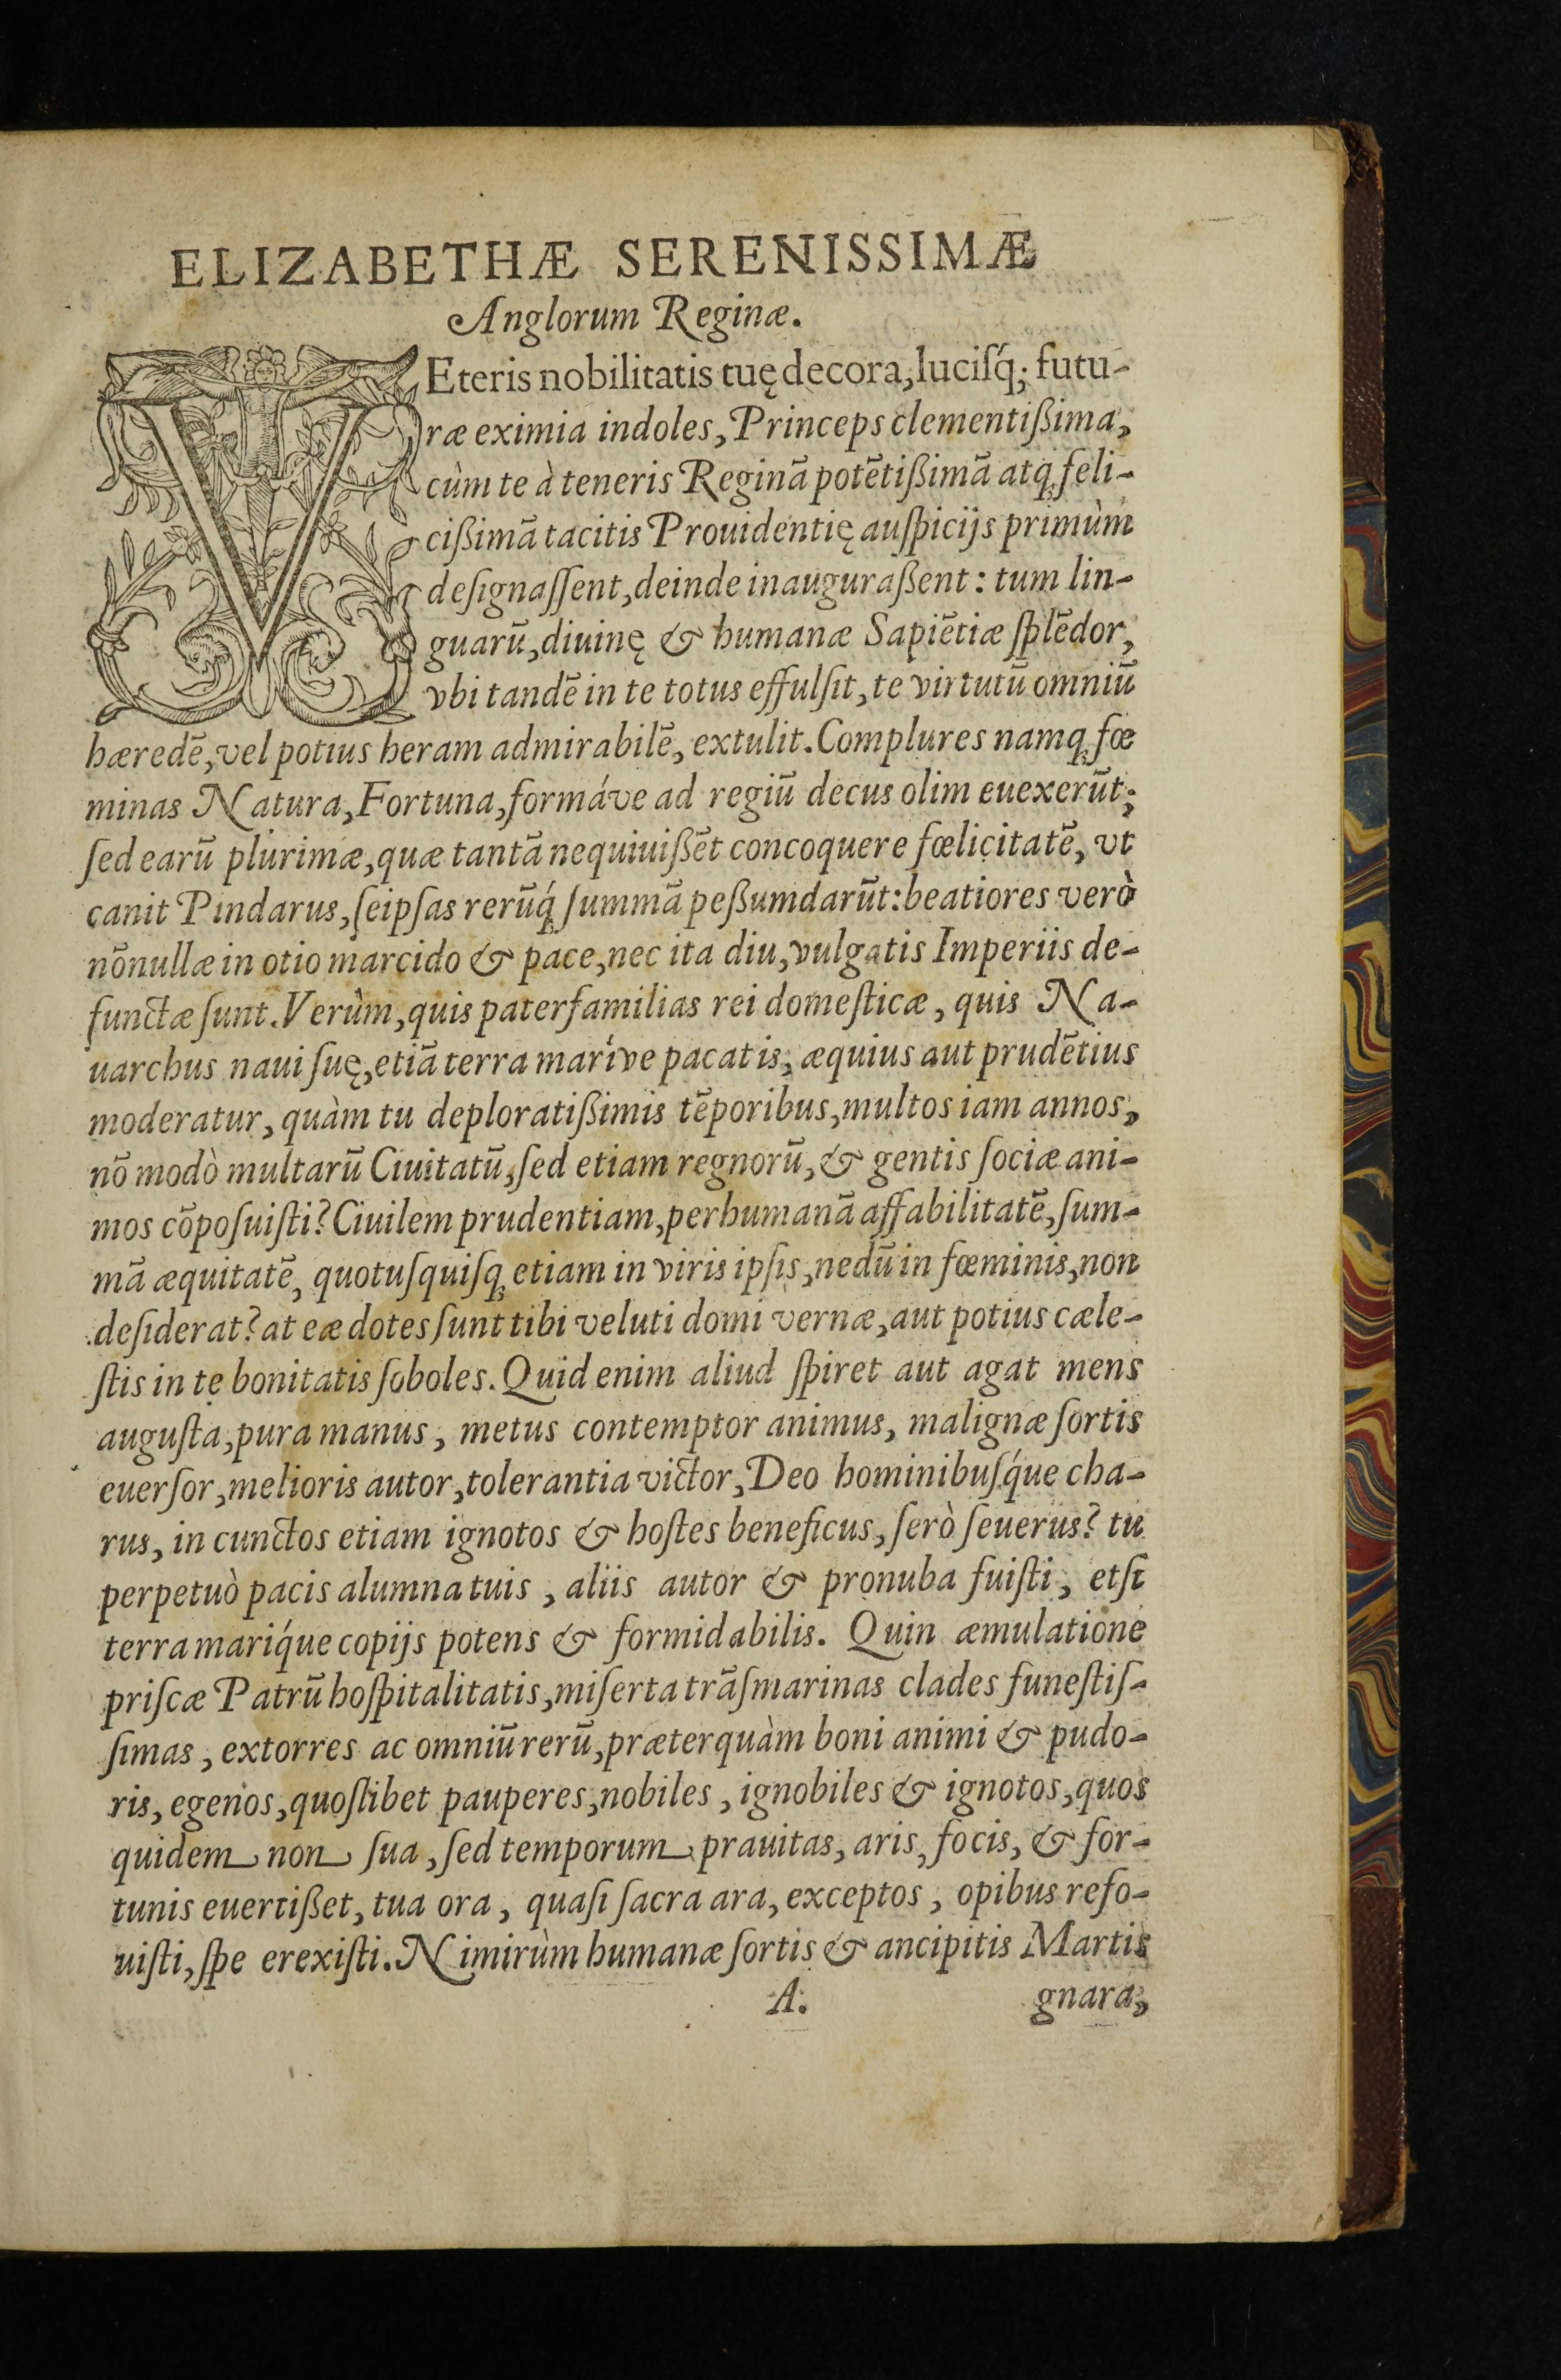 ELIZABETHÆ SERENISSIMÆ
Anglorum Reginæ.
VEteris nobilitatis tuę decora, luciſq́; futu-
ræ eximia indoles, Princeps clementißima,
cùm te à teneris Reginā potētißimā atq; feli-
cißimā tacitis Prouidentię auſpicijs primùm
deſignaſſent, deinde inauguraßent: tum lin-
guarū, diuinę & humanæ Sapiētiæ ſplēdor,
vbi tandē in te totus effulſit, te virtutū omniū
hæredē, vel potius heram admirabilē, extulit. Complures namq; fœ
minas Natura, Fortuna, formáve ad regiū decus olim euexerūt;
ſed earū plurimæ, quæ tantā nequiuißēt concoquere fœlicitatē, vt
canit Pindarus, ſeipſas rerūq́; ſummā peßumdarūt: beatiores verò
nōnullæ in otio marcido & pace, nec ita diu, vulgatis Imperiis de-
functæ ſunt. Verùm, quis paterfamilias rei domeſticæ, quis Na-
uarchus naui ſuę, etiā terra maríve pacatis, æquius aut prudētius
moderatur, quàm tu deploratißimis tēporibus, multos iam annos,
nō modò multarū Ciuitatū, ſed etiam regnorū, & gentis ſociæ ani-
mos cōpoſuiſti? Ciuilem prudentiam, perhumanā affabilitatē, ſum-
mā æquitatē, quotuſquiſq; etiam in viris ipſis, nedū in fœminis, non
deſiderat? at eæ dotes ſunt tibi veluti domi vernæ, aut potius cæle-
ſtis in te bonitatis ſoboles. Quid enim aliud ſpiret aut agat mens
auguſta, pura manus, metus contemptor animus, malignæ ſortis
euerſor, melioris autor, tolerantia victor, Deo hominibuſq́ue cha-
rus, in cunctos etiam ignotos & hoſtes beneficus, ſerò ſeuerus? tu
perpetuò pacis alumna tuis, aliis autor & pronuba fuiſti, etſi
terra mariq́ue copijs potens & formidabilis. Quin æmulatione
priſcæ Patrū hoſpitalitatis, miſerta trāſmarinas clades funeſtiſ-
ſimas, extorres ac omniū rerū, præterquàm boni animi & pudo-
ris, egenos, quoſlibet pauperes, nobiles, ignobiles & ignotos, quos
quidem non ſua, ſed temporum prauitas, aris, focis, & for-
tunis euertißet, tua ora, quaſi ſacra ara, exceptos, opibus refo-
uiſti, ſpe erexiſti. Nimirùm humanæ ſortis & ancipitis Martis
A. gnara,